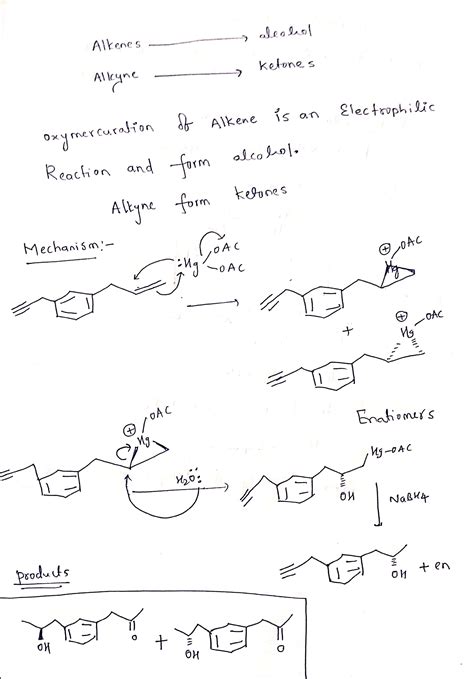 Alkenes → alcohol
Alkyne → ketones
oxymercuration of Alkene is an Electrophilic
Reaction and form alcohol.
Alkyne form ketones
Mechanism:-
:Hg OAC
OAC
⊕ OAC
Hg
+
⊕ OAC
Hg
Enatiomers
⊕ OAC
Hg
H2O:
Hg-OAC
OH
NaBH4
OH + en
Products
OH O + OH O